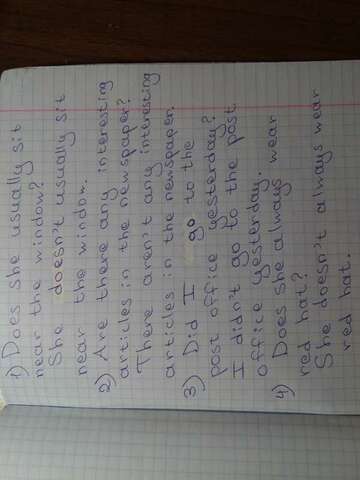 1) Does she usually sit
near the window?
She doesn't usually sit
near the window.
2) Are there any interesting
articles in the newspaper?
There aren't any interesting
articles in the newspaper.
3) Did I go to the
post office yesterday?
I didn't go to the post
office yesterday.
4) Does she always wear
red hat?
She doesn't always wear
red hat.